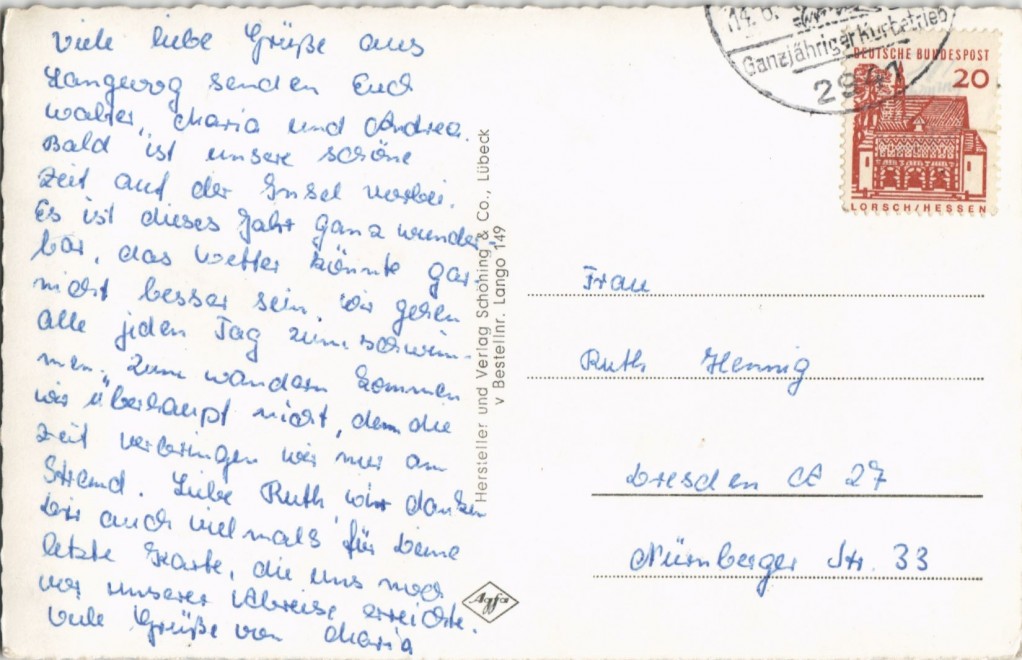 Viele liebe Grüße aus
Langeoog senden Euch
Walter, Maria und Andrea.
Bald ist unsere schöne
Zeit auf der Insel vorbei.
Es ist dieses Jahr ganz wunder-
bar, das Wetter könnte gar
nicht besser sein. Wir gehen
alle jeden Tag zum schwim-
men. Zum wandern kommen
wir überhaupt nicht, denn die
Zeit verbringen wir nur am
Strand. Liebe Ruth, wir danken
Dir auch vielmals für Deine
letzte Karte, die uns noch
vor unserer Abreise erreichte.
Viele Grüße von Maria
Hersteller und Verlag Schöning & Co., Lübeck
v Bestellnr. Lango 149
Agfa
14. 6.
Ganzjähriger Kurbetrieb
2941
DEUTSCHE BUNDESPOST
20
LORSCH/HESSEN
Frau
Ruth Hennig
Dresden A 27
Nürnberger Str. 33